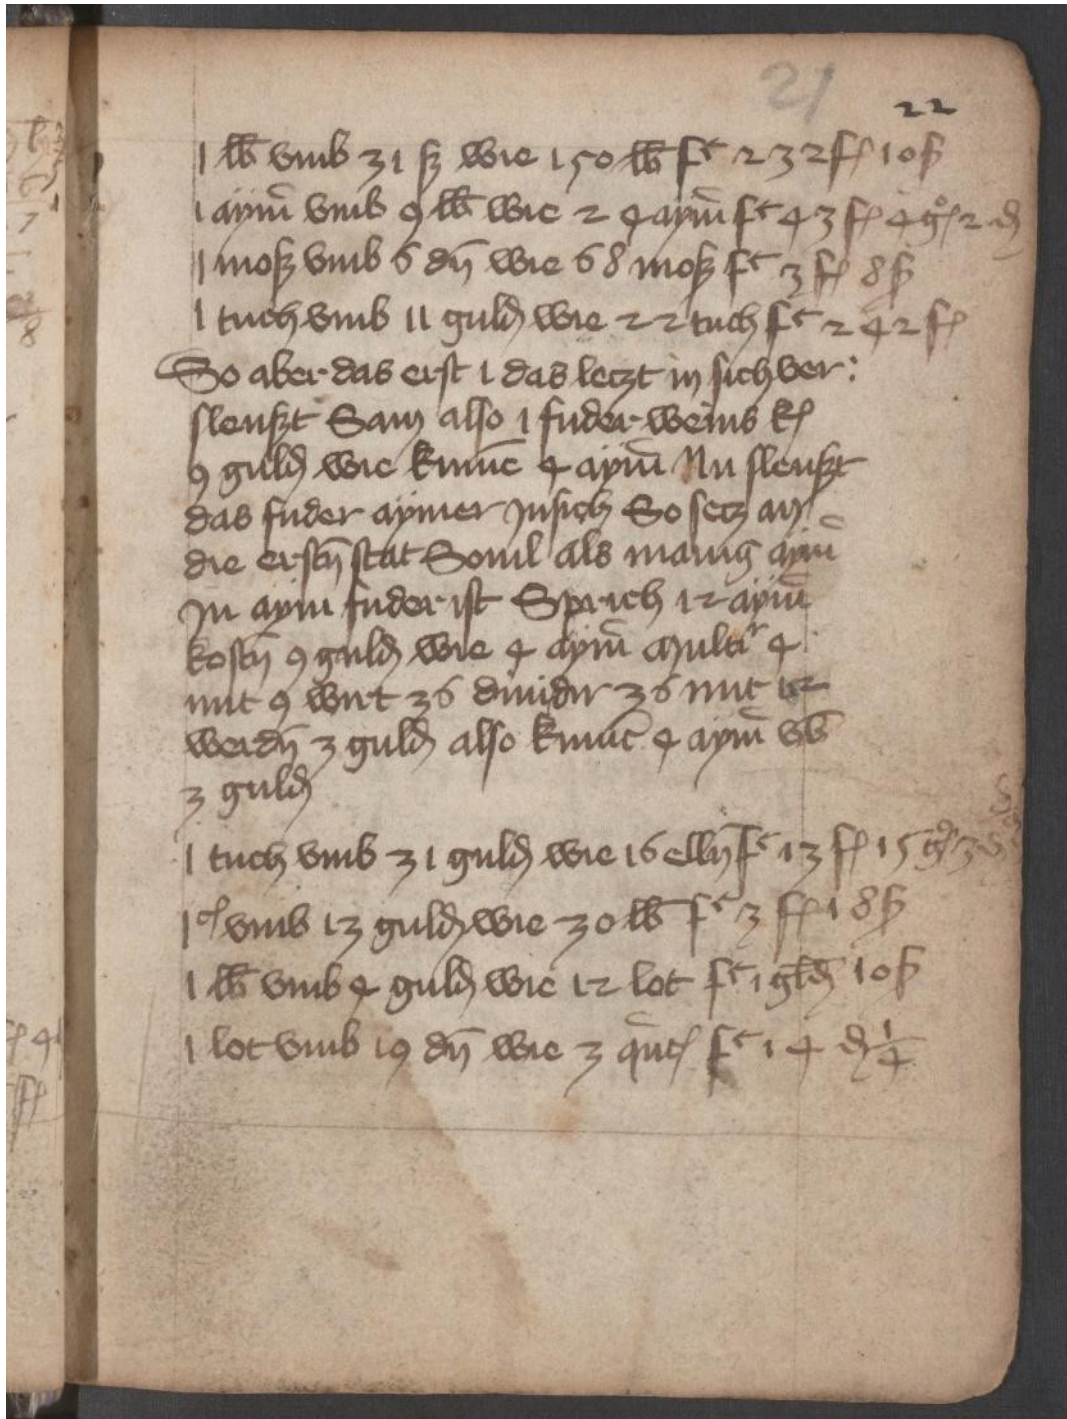 21
22
1 lb vmb 31 ß wie 150 lb f͡c 232 fl 10 ß
1 aym̄ vmb 9 lb wie 24 aym̄ f͡c 43 fl 4 gͦ 2 ₰
1 mosz vmb 6 dn̄ wie 68 mosz f͡c 3 fl 8 ß
1 tuch vmb 11 guld wie 22 tuch f͡c 242 fl
So aber das erst 1 das letzt in sich ver:
sleuszt Sam also 1 fuder weins k
9 guld wie kumē 4 aym̄ Nu sleuszt
das fuder aymer in sich So setz an
die erstn̄ stat Souil als manig aym̄
In aym fuder ist Sprich 12 aym̄
kostn̄ 9 guld wie 4 aym̄ multir 4
mit 9 wirt 36 diuidir 36 mit 12
werdn̄ 3 guld also kumē 4 aym̄ vb̄
3 guld
1 tuch vmb 31 guld wie 16 elln̄ f͡c 13 fl 15 g 3
1 c vmb 13 guld wie 30 lb f͡c 3 fl 18 ß
1 lb vmb 4 guld wie 12 lot f͡c 1 gld 10 ß
1 lot vmb 19 dn̄ wie 3 qūt f͡c 14 ₰ 1/4